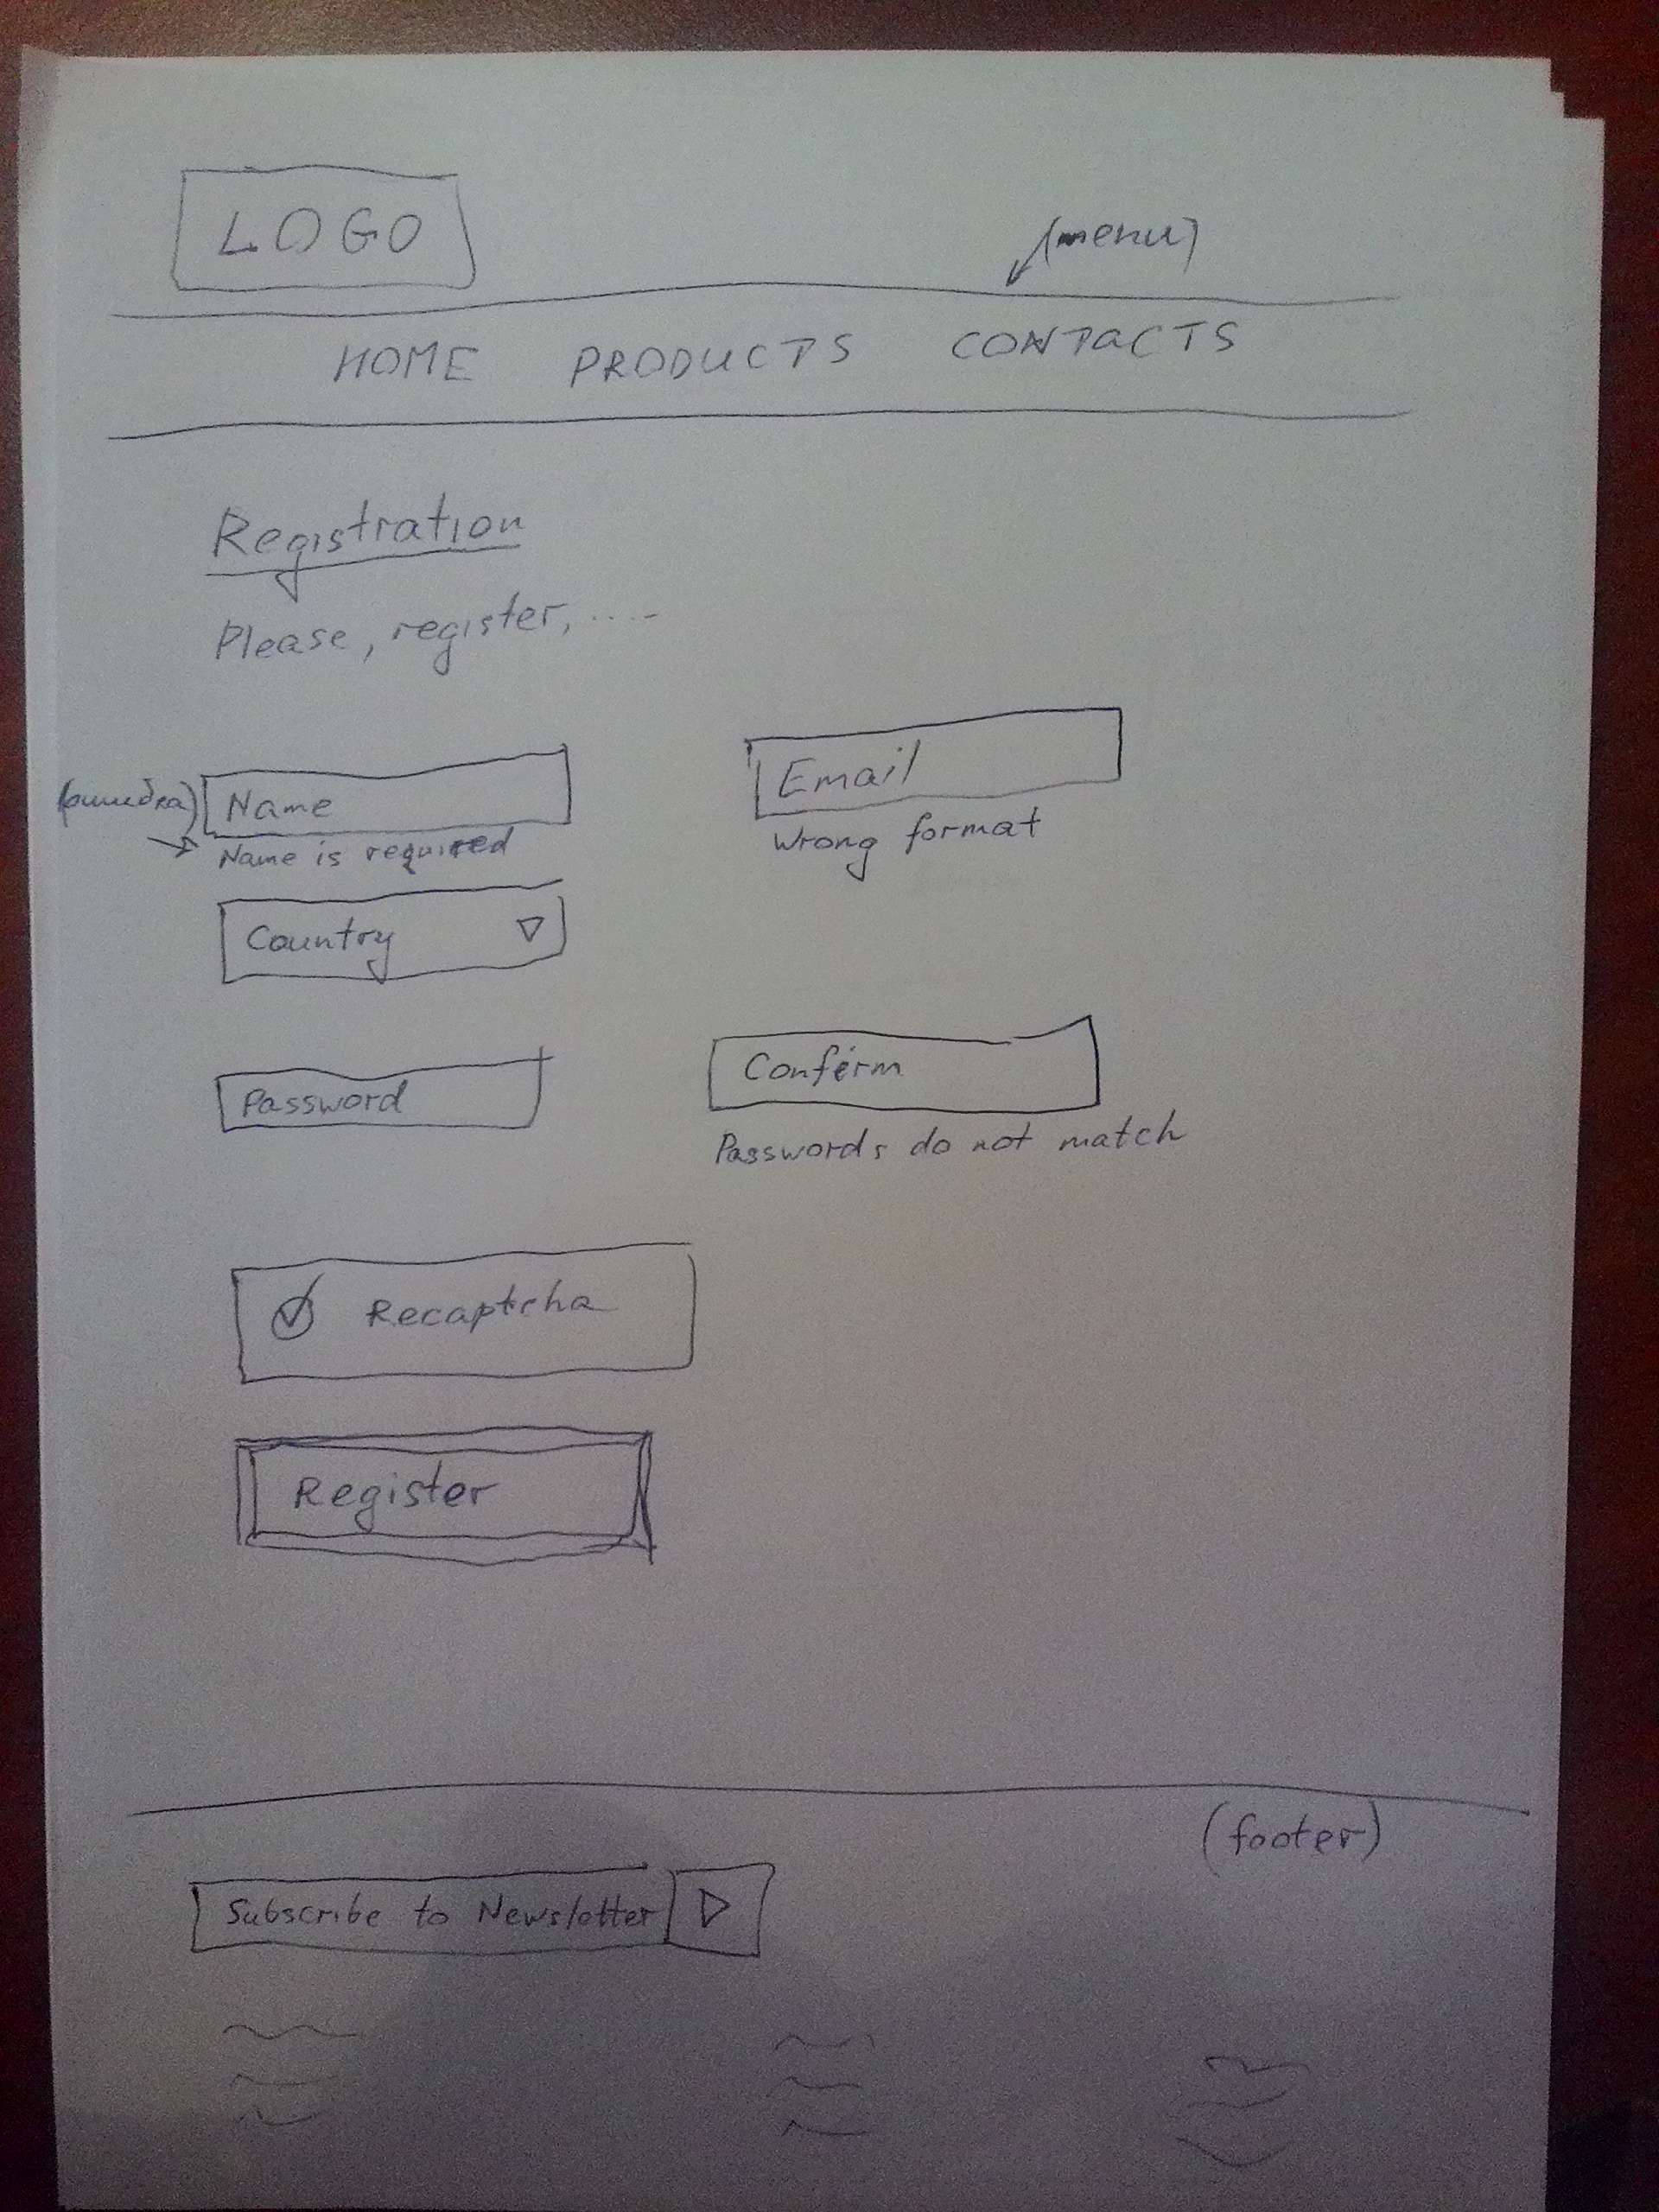 LOGO
(menu)
HOME PRODUCTS CONTACTS
Registration
Please, register, .....
Name
Email
(ошибка)
Name is required
Wrong format
Country
Password
Confirm
Passwords do not match
Recaptcha
Register
(footer)
Subscribe to Newsletter